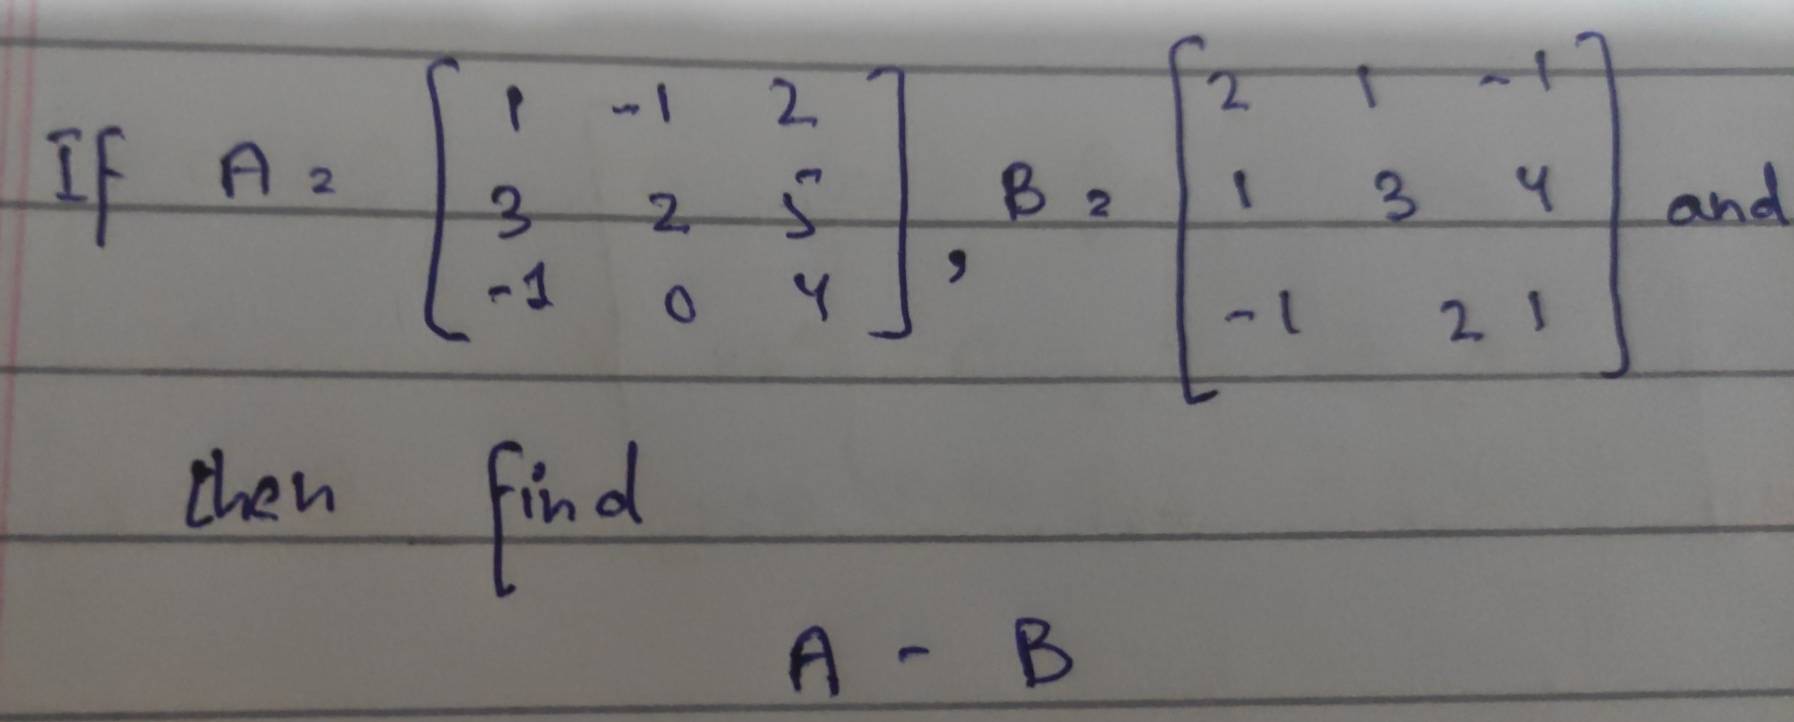 If A = [ 1 -1 2 ; 3 2 5 ; -1 0 4 ], B = [ 2 1 -1 ; 1 3 4 ; -1 2 1 ] and
then find
A - B